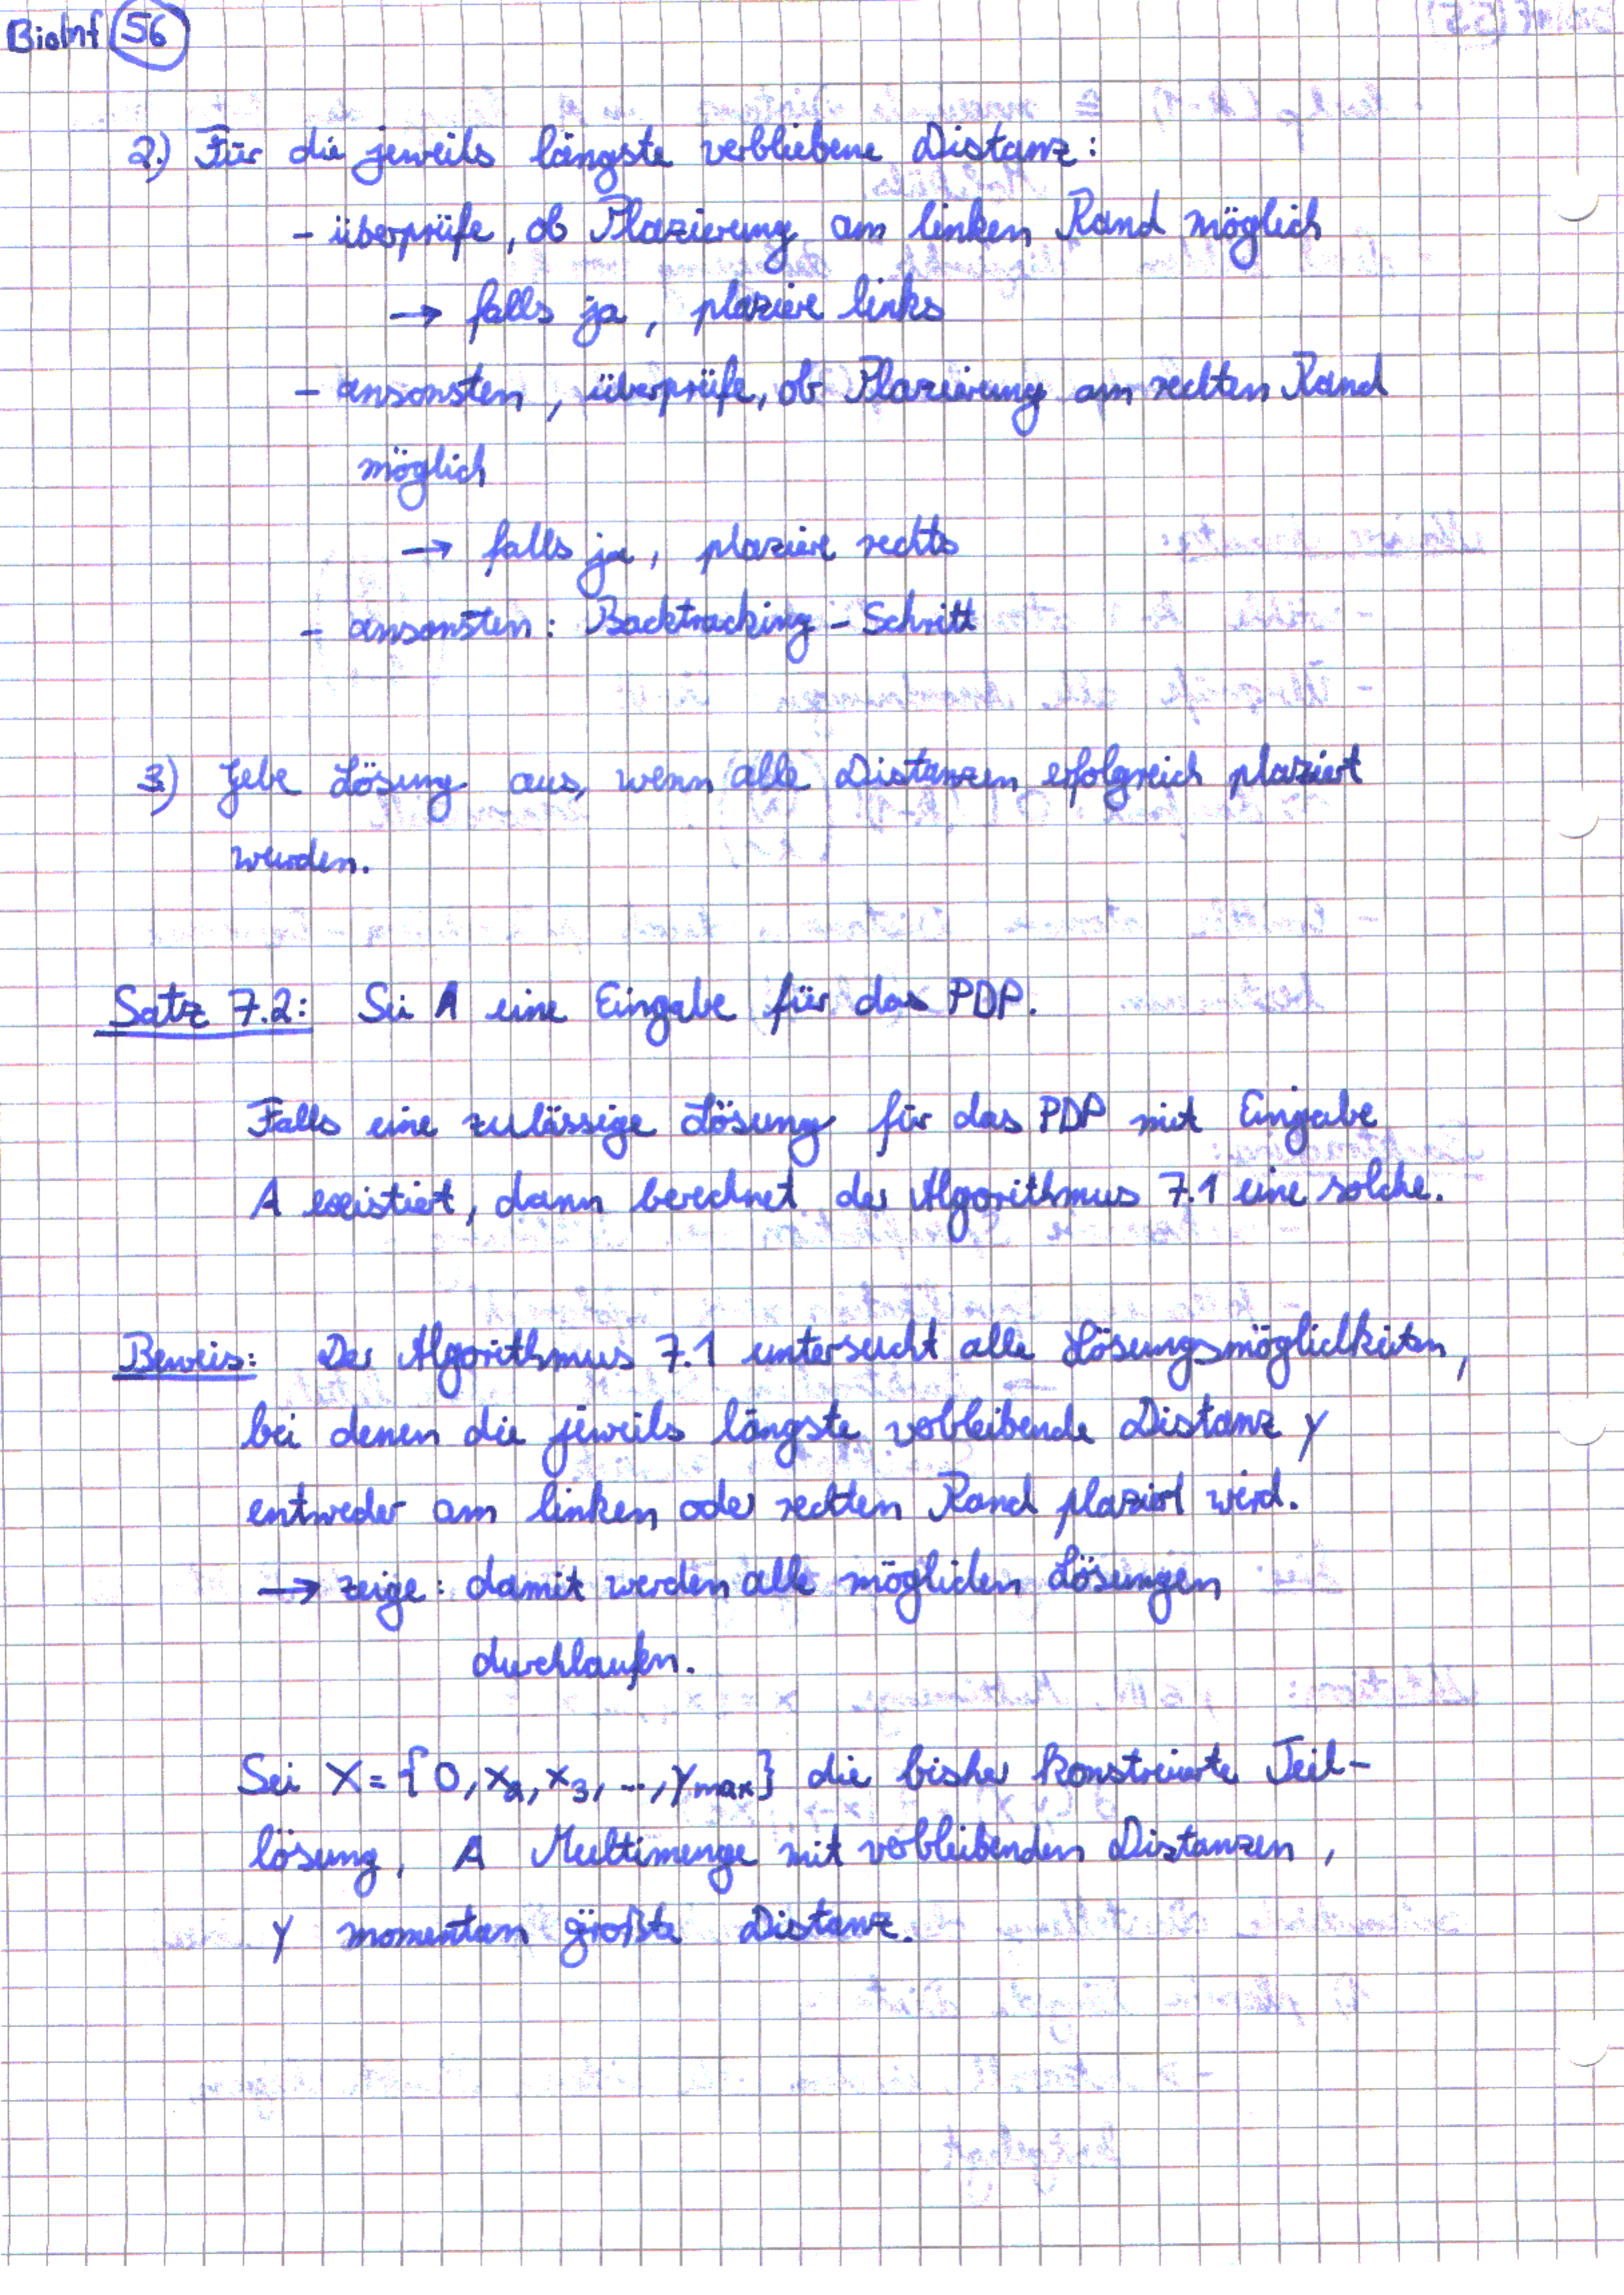 BioInf 56
2.) Für die jeweils längste verbliebene Distanz:
- überprüfe, ob Plazierung am linken Rand möglich
→ falls ja, plaziere links
- ansonsten, überprüfe, ob Plazierung am rechten Rand
möglich
→ falls ja, plaziere rechts
- ansonsten: Backtracking-Schritt
3) Gebe Lösung aus, wenn alle Distanzen erfolgreich plaziert
wurden.
Satz 7.2: Sei A eine Eingabe für das PDP.
Falls eine zulässige Lösung für das PDP mit Eingabe
A existiert, dann berechnet der Algorithmus 7.1 eine solche.
Beweis: Der Algorithmus 7.1 untersucht alle Lösungsmöglichkeiten,
bei denen die jeweils längste verbleibende Distanz y
entweder am linken oder rechten Rand plaziert wird.
→ zeige: damit werden alle möglichen Lösungen
durchlaufen.
Sei X = {0, x₂, x₃, ..., y_max} die bisher konstruierte Teil-
lösung, A Multimenge mit verbleibenden Distanzen,
y momentan größte Distanz.